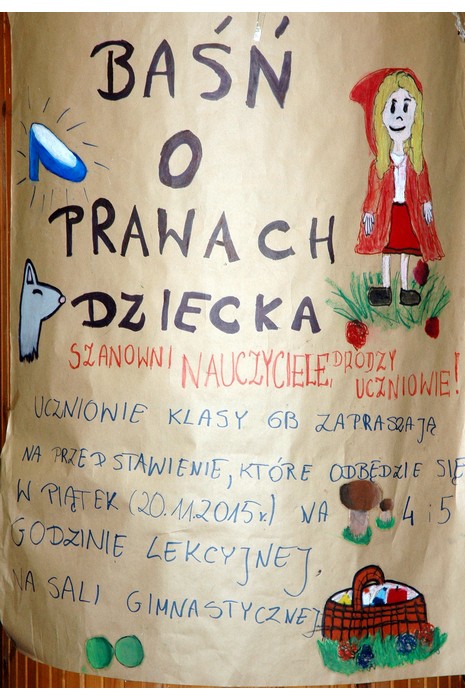 BAŚŃ
O
PRAWACH
DZIECKA
SZANOWNI NAUCZYCIELE, DRODZY
UCZNIOWIE!
UCZNIOWIE KLASY 6B ZAPRASZAJĄ
NA PRZEDSTAWIENIE, KTÓRE ODBĘDZIE SIĘ
W PIĄTEK (20.11.2015r.) NA 4 i 5
GODZINIE LEKCYJNEJ,
NA SALI GIMNASTYCZNEJ